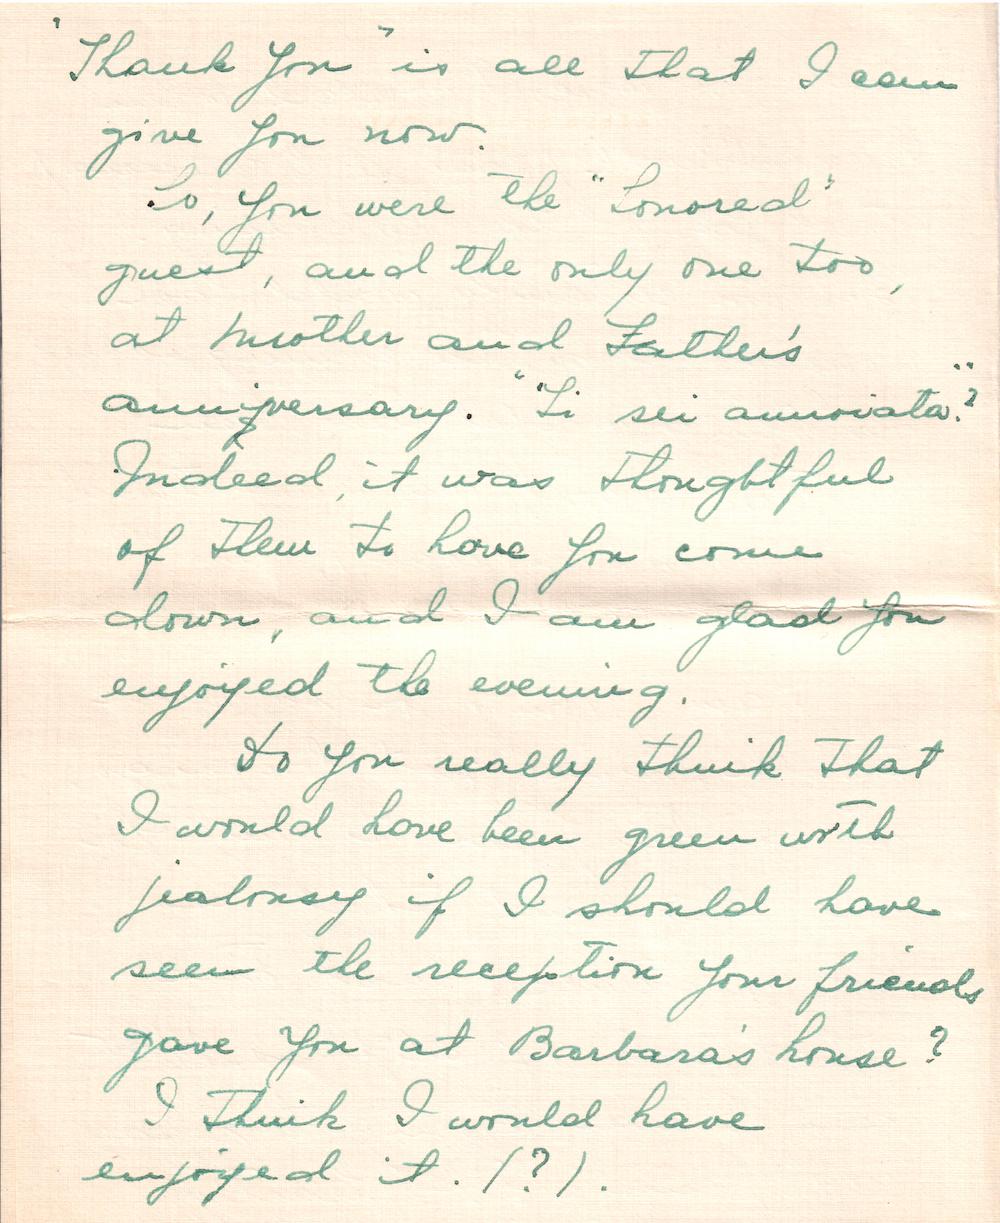 "Thank You" is all that I can
give You now.
So, You were the "honored"
guest, and the only one too,
at Mother and Father's
anniversary. "Ti sei annoiata"?
Indeed, it was thoughtful
of them to have You come
down, and I am glad You
enjoyed the evening.
Do You really think that
I would have been green with
jealousy if I should have
seen the reception Your friends
gave You at Barbara's house?
I think I would have
enjoyed it. (?).